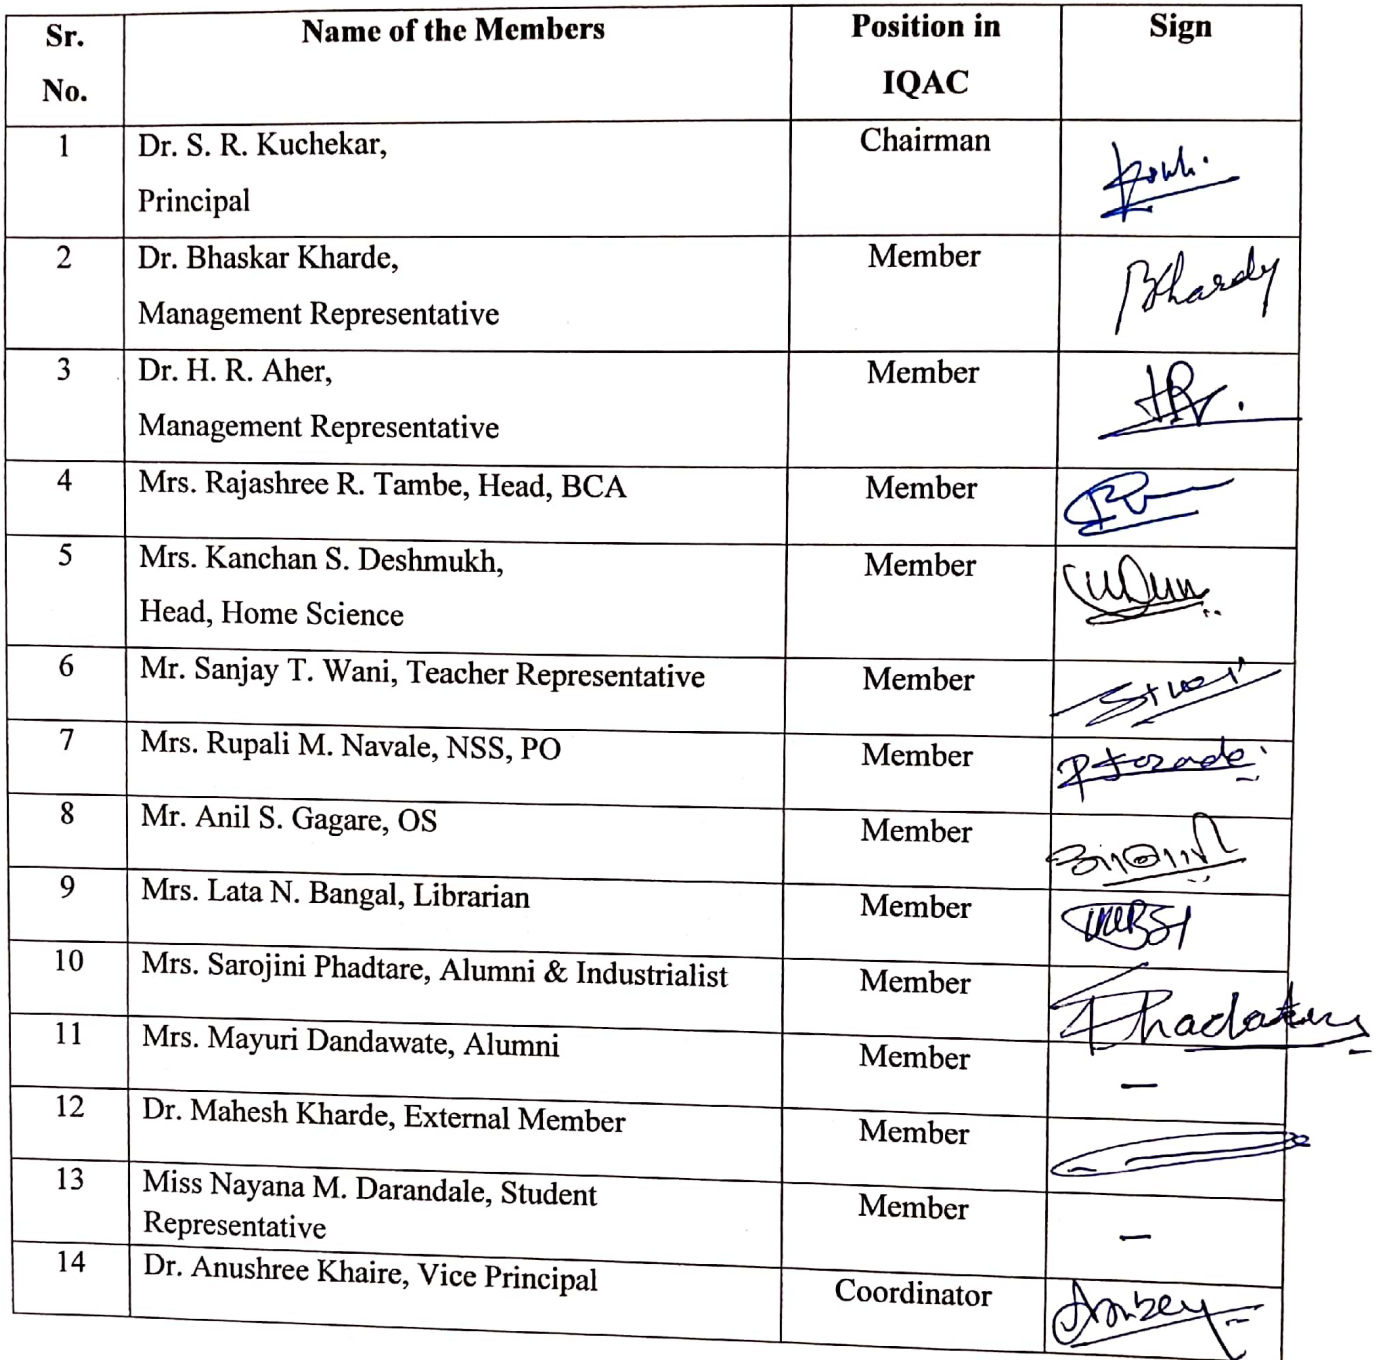 Sr.
No.
Name of the Members
Position in
IQAC
Sign
1
Dr. S. R. Kuchekar,
Principal
Chairman
2
Dr. Bhaskar Kharde,
Management Representative
Member
3
Dr. H. R. Aher,
Management Representative
Member
4
Mrs. Rajashree R. Tambe, Head, BCA
Member
5
Mrs. Kanchan S. Deshmukh,
Head, Home Science
Member
6
Mr. Sanjay T. Wani, Teacher Representative
Member
7
Mrs. Rupali M. Navale, NSS, PO
Member
8
Mr. Anil S. Gagare, OS
Member
9
Mrs. Lata N. Bangal, Librarian
Member
10
Mrs. Sarojini Phadtare, Alumni & Industrialist
Member
11
Mrs. Mayuri Dandawate, Alumni
Member
–
12
Dr. Mahesh Kharde, External Member
Member
13
Miss Nayana M. Darandale, Student
Representative
Member
–
14
Dr. Anushree Khaire, Vice Principal
Coordinator